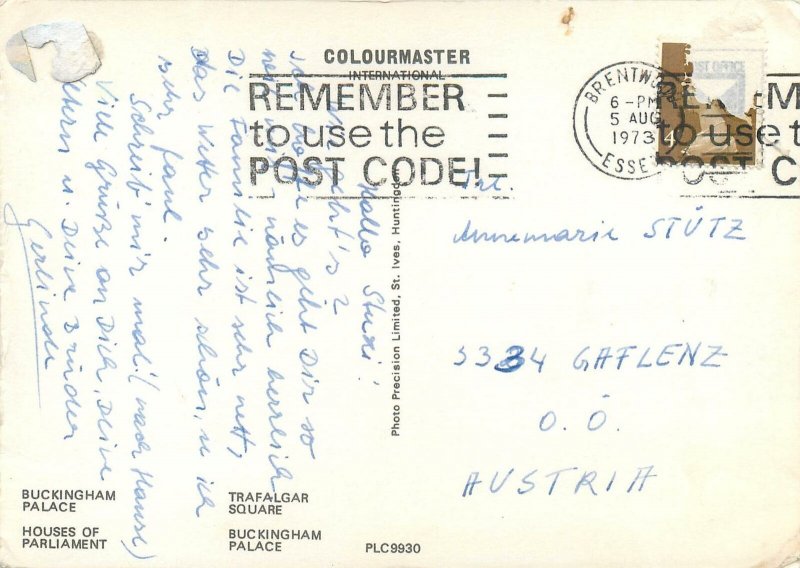 COLOURMASTER
INTERNATIONAL
REMEMBER
to use the
POST CODE!
BRENTWOOD
6-PM
5 AUG
1973
ESSEX
REMEM
to use t
POST C
Hallo Stuzi!
Wie geht's?
Ich hoffe es geht Dir so
wie mir, nämlich herrlich
Die Familie ist sehr nett,
das Wetter sehr schön, u ich
sehr faul.
Schreib mir mal! (nach Hause)
Viele Grüße an Dich, Deine
Eltern u. Deine Brüder
Gerlinde
Photo Precision Limited, St. Ives, Huntingdon
Frl.
Annemarie STÜTZ
3334 GAFLENZ
O.Ö.
AUSTRIA
BUCKINGHAM
PALACE
TRAFALGAR
SQUARE
HOUSES OF
PARLIAMENT
BUCKINGHAM
PALACE
PLC9930